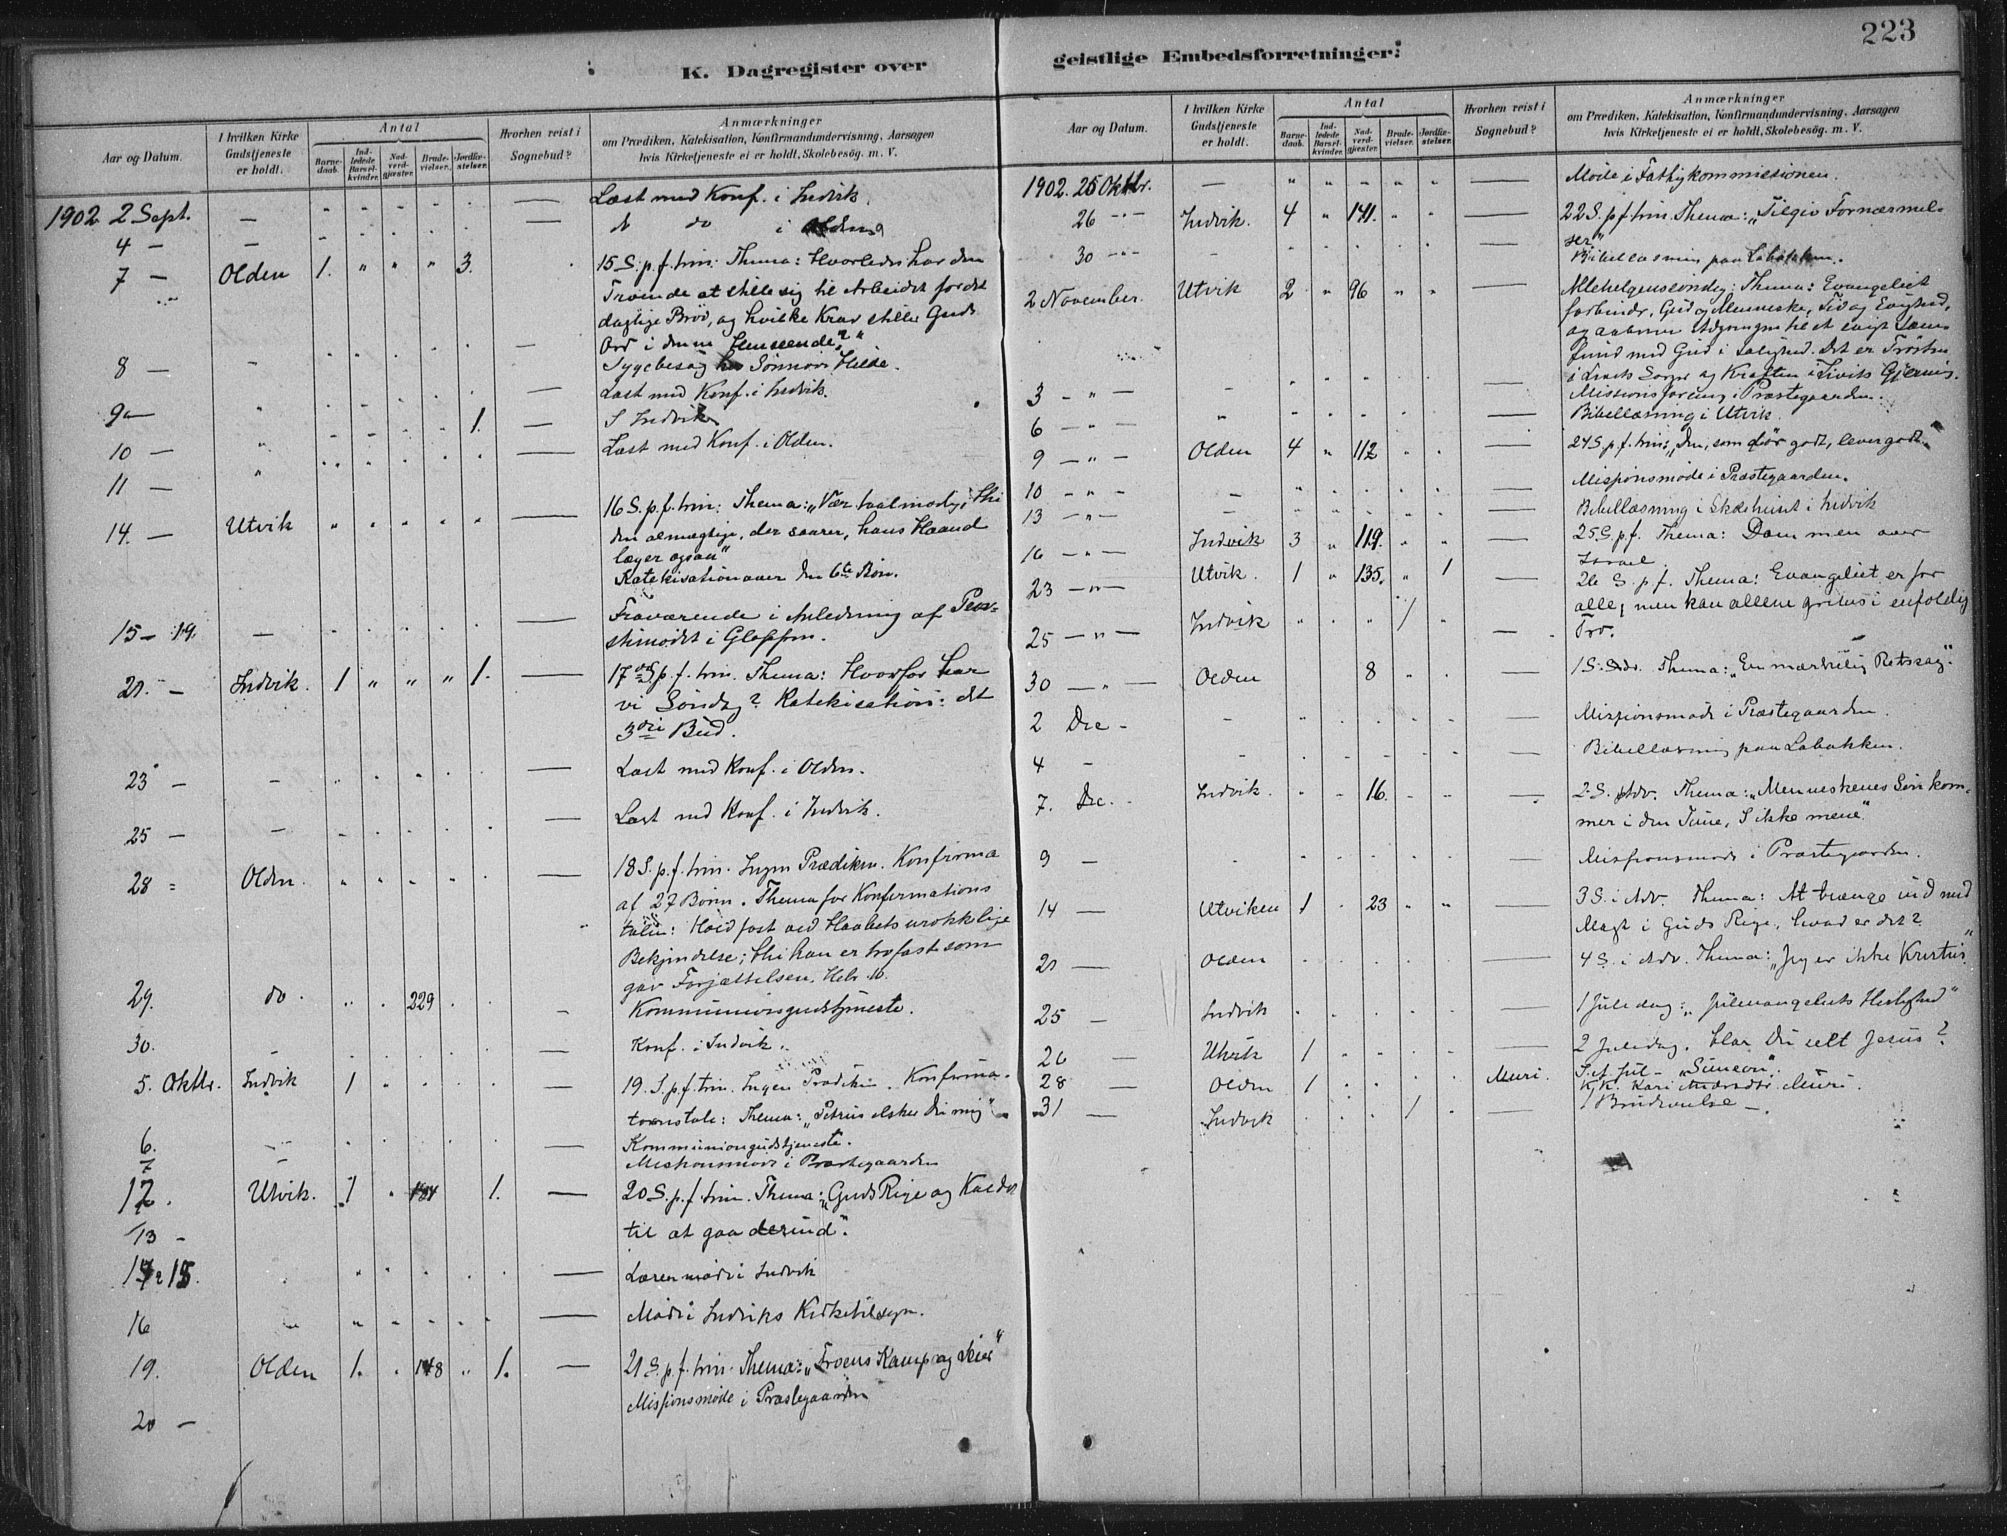 223
K. Dagregister over geistlige Embedsforretninger.
Aar og Datum.
I hvilken Kirke Gudstjeneste er holdt.
Antal
Barnedaab.
Indledede Barselkvinder.
Nadverdgjæster.
Brudevielser.
Jordfæstelser.
Hvorhen reist i Sognebud?
Anmærkninger
om Prædiken, Katekisation, Konfirmandundervisning, Aarsagen
hvis Kirketjeneste ei er holdt, Skolebesøg m. V.
1902 2 Sept. — Læst med Konf. i Indvik.
4 — — do i Olden
7 — Olden 1. " " " 3. 15 S. p. f. trin. Thema: Hvorledes har den
Troende at stille sig til Arbeidet for det
daglige Brød, og hvilke Krav stiller Guds
Ord i denne Henseende?"
8 — Sygebesøg hos Sönnöv Hilde.
9 — Læst med Konf. i Indvik.
10 — 1. I Indvik
11 — Læst med Konf. i Olden.
14. — Utvik " " " " " 16 S. p. f. trin: Thema: "Vær taalmodig, thi
den almægtige, der saarer, hans Haand
læger ogsaa"
Katekisation over den 6te Bøn.
15 — 19. — Fraværende i Anledning af Prov-
stimødet i Gloppen.
21. — Indvik. 1 " " " 1. 17de S. p. f. trin. Thema: Hvorfor har
vi Søndag? Katekisation: det
3die Bud.
23 — Læst med Konf. i Olden.
25 — Læst med Konf. i Indvik.
28 Olden. 18 S. p. f. trin. Ingen Prædiken. Konfirma
af 27 Børn. Thema for Konfirmations
talen: Hold fast ved Haabets urokkelige
Bekjendelse; thi han er trofast som
gav Forjættelsen. Hebr. 10.
29. do. 229 Kommunionsgudstjeneste.
30. Konf. i Indvik.
5. Oktbr. Indvik 1 19. S. p. f. trin. Ingen Prædiken. Konfirma-
tionstale: Thema: "Petrus elsker du mig"
6. Kommuniongudstjeneste.
7 Missionsmøde i Præstegaarden
12. Utvik. 1 " 104 1. — 20 S. p. f. trin. Thema: "Guds Rige og Kaldet
til at gaa derind".
13 —
15. Læremøde i Indvik
16 Møde i Indviks Kirketilsyn.
19. Olden 1. 148 " 1. — 21 S. p. f. trin. Thema: "Troens Kamp og Seier"
20 — Missionsmøde i Præstegaarden
Aar og Datum.
I hvilken Kirke Gudstjeneste er holdt.
Antal
Barnedaab.
Indledede Barselkvinder.
Nadverdgjæster.
Brudevielser.
Jordfæstelser.
Hvorhen reist i Sognebud?
Anmærkninger
om Prædiken, Katekisation, Konfirmandundervisning, Aarsagen
hvis Kirketjeneste ei er holdt, Skolebesøg m. V.
1902. 25 Oktbr. — " " " " " Møde i Fattigkommissionen.
26 — Indvik. 4 " 141. " " — 22 S. p. f. trin. Thema: "Tilgiv Fornærmel-
ser"
30 — Bibellæsning paa Løbakken.
2 November. Utvik 2 " 96 " " — Allehelgenssøndag: Thema: Evangeliet
forbinder Gud og Menneske, Tid og Evighed,
og aabner Adgangen til et evigt Sam-
fund med Gud i Salighed. Det er Trøsten
i Livets Sorger og Kraften i Livets Gjerning.
3 — " — Missionsforening i Præstegaarden.
6 — " — Bibellæsning i Utvik.
9 — " — Olden 4 " 112 — 24 S. p. f. trin: "Den, som dør godt, lever godt."
10 — " — Missionsmøde i Præstegaarden.
13 — " — Bibellæsning i Skolehuset i Indvik
16 — " — Indvik 3 " 119. " " — 25 S. p. f. Thema: Dommen over
Israel.
23 — " — Utvik. 1 " 135. " 1 — 26 S. p. f. Thema: Evangeliet er for
alle, men kan allene gribes i enfoldig
Tro.
25 — " — Indvik 1
30 — " — Olden 8 — 1 S. Adv. Thema: "En mærkelig Retssag".
2 Dec — Missionsmøde i Præstegaarden.
4 — Bibellæsning paa Løbakken.
7. Dec. Indvik. 16. — 2. S. Adv. Thema: "Menneskenes Søn kom-
mer i den Time, I ikke mene".
9 — Missionsmøde i Præstegaarden.
14 — Utviken 1 " 23 " " — 3 S. i Adv. Thema: At trænge ind med
Magt i Guds Rige, hvad er det?
21 — Olden — 4 S. i Adv. Thema: "Jeg er ikke Kristus"
25 — Indvik — 1 Juledag: "Juleevangeliets Herlighed"
26 — Utvik 1 — 2 Juledag. Har Du seet Jesus?
28 — Olden 1 Muri. S. e. Jul — "Simeon".
K. K. Kari Andersdtr. Muri.
31 — Indvik 1 — 1 Brudevielse —.